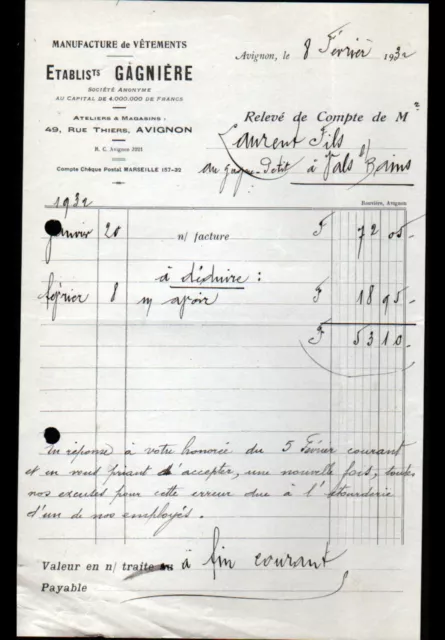 MANUFACTURE de VÊTEMENTS
ETABLISTS GAGNIÈRE
SOCIÉTÉ ANONYME
AU CAPITAL DE 4.000.000 DE FRANCS
ATELIERS & MAGASINS :
49, RUE THIERS, AVIGNON
R. C. Avignon 3921
Compte Chèque Postal MARSEILLE 157-20
Avignon, le 8 Février 1932
Relevé de Compte de Mr
Laurent Fils
au Gagne-Petit à Vals s/ Bains
Barrière, Avignon
1932
Janvier 20 n/ facture F 72 05
à déduire :
février 8 n/ avoir F 18 95
F 53 10
En réponse à votre honorée du 5 Février courant
et en vous priant d'accepter, une nouvelle fois, toutes
nos excuses pour cette erreur due à l'étourderie
d'un de nos employés.
Valeur en n/ traite au à fin courant
Payable